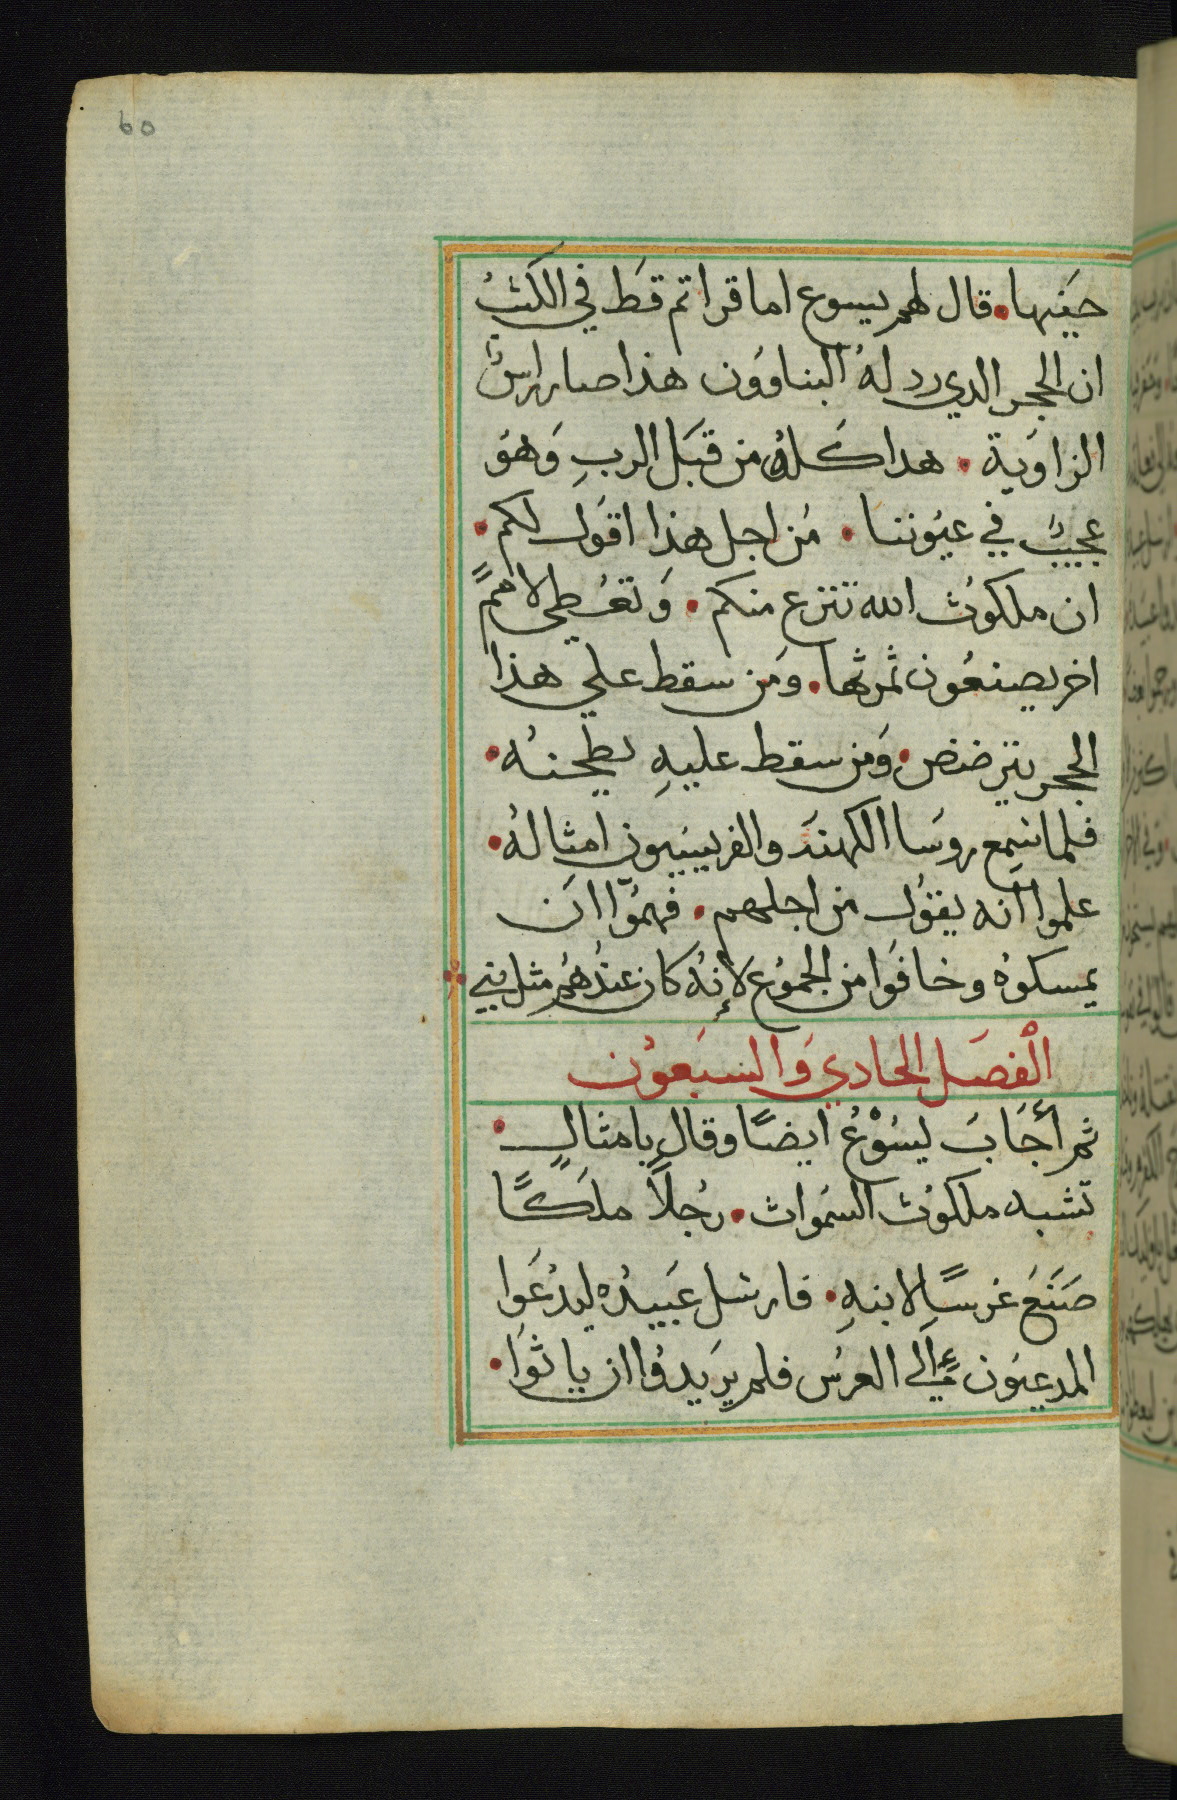 60
حينها. قال لهم يسوع اما قراتم قط في الكتب
ان الحجر الدي رد له البناوون هذا صار راس
الزاوية. هدا كله من قبل الرب وهو
عجيب في عيوننا. من اجل هذا اقول لكم.
ان ملكوث الله تنزع منكم. وتعطي لامم
اخر يصنعون ثمرثها. ومن سقط علي هذا
الحجر يترضض. ومن سقط عليه يطحنه.
فلما سمع روسا الكهنه والفريسيون امثاله.
علموا انه يقول من اجلهم. فهموا ان
يمسكوه وخافوا من الجموع لإنه كان عندهم مثل نبي
الفصل الحادي والسبعون
ثم أجاب ليسوع ايضًا وقال بامثال.
تشبه ملكوث السموات. رجلاً ملكًا
صنع عرسًا لابنه. فارسل عبيده ليدعوا
المدعيون إلي العرس فلم يريدوا ان ياثوا.